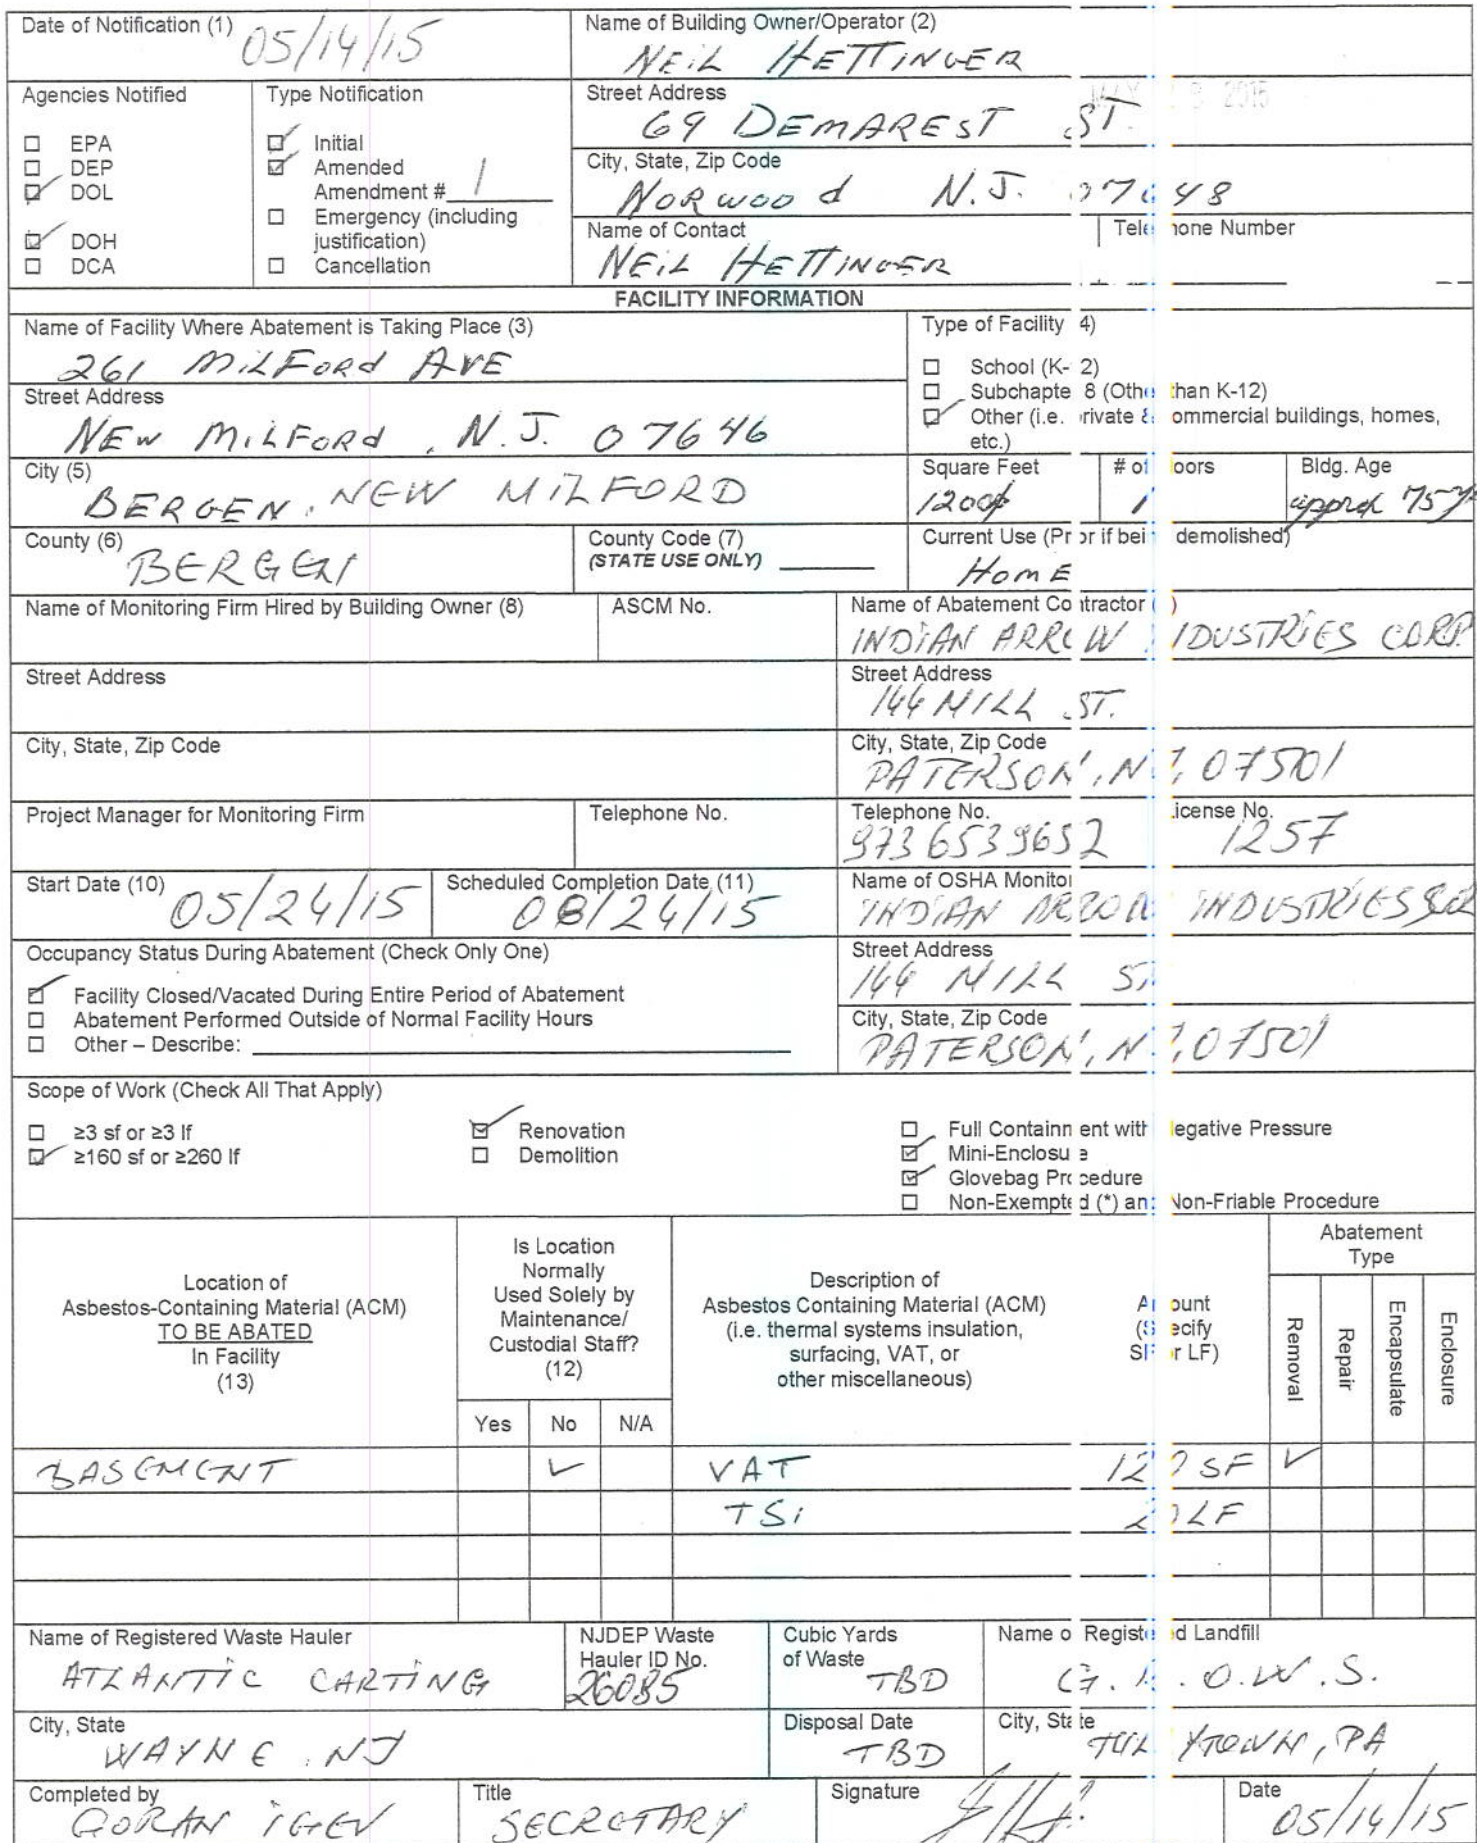 Date of Notification (1) 05/14/15
Name of Building Owner/Operator (2)
NEIL HETTINGER
Agencies Notified
EPA
DEP
DOL
DOH
DCA
Type Notification
Initial
Amended
Amendment # 1
Emergency (including
justification)
Cancellation
Street Address
69 DEMAREST ST.
2015
City, State, Zip Code
NORWOOD N.J. 07648
Name of Contact
NEIL HETTINGER
Telephone Number
FACILITY INFORMATION
Name of Facility Where Abatement is Taking Place (3)
261 MILFORD AVE
Street Address
NEW MILFORD, N.J. 07646
City (5)
BERGEN, NEW MILFORD
County (6)
BERGEN
County Code (7)
(STATE USE ONLY)
Type of Facility 4)
School (K- 2)
Subchapte 8 (Othe than K-12)
Other (i.e. rivate & ommercial buildings, homes,
etc.)
Square Feet
1200
# of oors
1
Bldg. Age
75
Current Use (Pr or if bei demolished)
HOME
Name of Monitoring Firm Hired by Building Owner (8)
ASCM No.
Name of Abatement Co tractor ( )
INDIAN ARROW INDUSTRIES CORP.
Street Address
Street Address
144 MILL ST.
City, State, Zip Code
City, State, Zip Code
PATERSON, NJ, 07501
Project Manager for Monitoring Firm
Telephone No.
Telephone No.
9736539652
icense No.
1257
Start Date (10) 05/24/15
Scheduled Completion Date (11)
08/24/15
Name of OSHA Monitor
INDIAN ARROW INDUSTRIES
Occupancy Status During Abatement (Check Only One)
Facility Closed/Vacated During Entire Period of Abatement
Abatement Performed Outside of Normal Facility Hours
Other – Describe:
Street Address
144 MILL ST
City, State, Zip Code
PATERSON, NJ, 07501
Scope of Work (Check All That Apply)
≥3 sf or ≥3 lf
≥160 sf or ≥260 lf
Renovation
Demolition
Full Containm ent with egative Pressure
Mini-Enclosu e
Glovebag Pro cedure
Non-Exempte d (*) an Non-Friable Procedure
Location of
Asbestos-Containing Material (ACM)
TO BE ABATED
In Facility
(13)
Is Location
Normally
Used Solely by
Maintenance/
Custodial Staff?
(12)
Yes No N/A
Description of
Asbestos Containing Material (ACM)
(i.e. thermal systems insulation,
surfacing, VAT, or
other miscellaneous)
Amount
(Specify
SF or LF)
Abatement
Type
Removal
Repair
Encapsulate
Enclosure
BASEMENT VAT SF
TSI LF
Name of Registered Waste Hauler
ATLANTIC CARTING
NJDEP Waste
Hauler ID No.
26085
Cubic Yards
of Waste
TBD
Name o Registe d Landfill
G. . O.W.S.
City, State
WAYNE, NJ
Disposal Date
TBD
City, State
TULLYTOWN, PA
Completed by
GORAN IGEV
Title
SECRETARY
Signature
Date
05/14/15